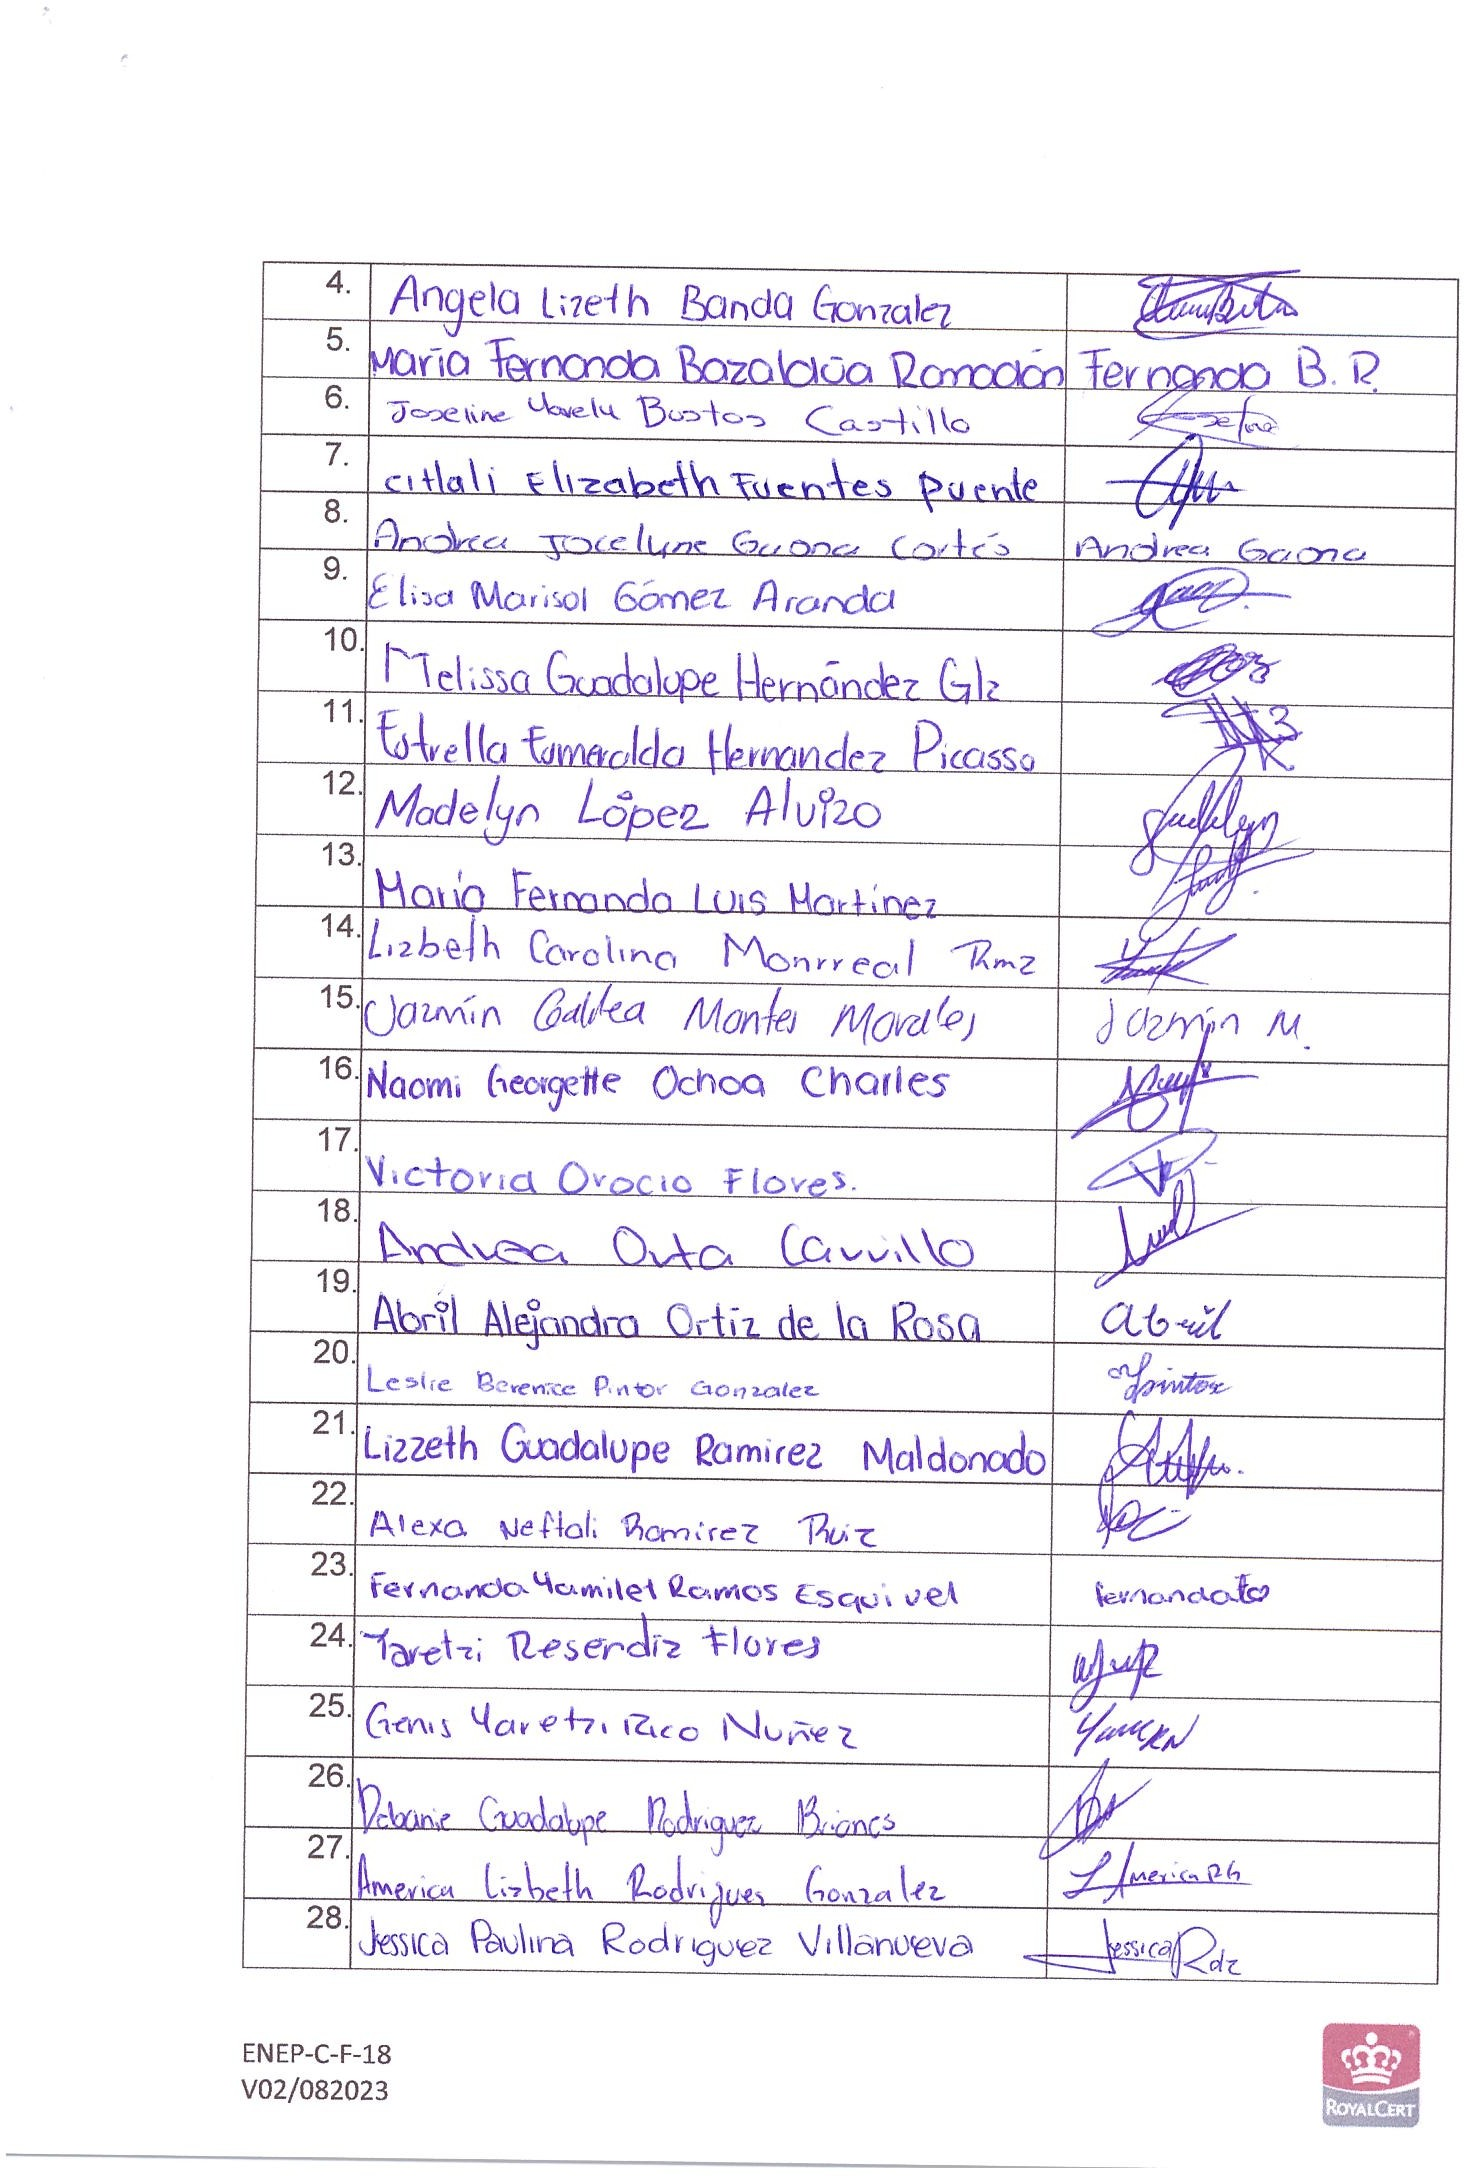 4. Angela Lizeth Banda Gonzalez
5. María Fernanda Bazaldúa Ramadán Fernanda B. R.
6. Joseline Yarely Bustos Castillo
7. Citlali Elizabeth Fuentes Puente
8. Andrea Jocelyne Gaona Cortés Andrea Gaona
9. Elisa Marisol Gómez Aranda
10. Melissa Guadalupe Hernández Glz
11. Estrella Esmeralda Hernandez Picasso
12. Madelyn López Alvizo
13. María Fernanda Luis Martínez
14. Lizbeth Carolina Monrreal Rmz
15. Jazmín Galilea Montes Morales Jazmín M.
16. Naomi Georgette Ochoa Charles
17. Victoria Orocio Flores.
18. Andrea Orta Carrillo
19. Abril Alejandra Ortiz de la Rosa Abril
20. Leslie Berenice Pintor Gonzalez
21. Lizzeth Guadalupe Ramirez Maldonado
22. Alexa Neftali Ramirez Ruiz
23. Fernanda Yamilet Ramos Esquivel
24. Yaretzi Resendiz Flores
25. Genis Yaretzi Rico Nuñez
26. Debanie Guadalupe Rodriguez Briones
27. America Lizbeth Rodrigues Gonzalez America RG
28. Jessica Paulina Rodriguez Villanueva Jessica Rdz
ENEP-C-F-18
V02/082023
ROYALCERT